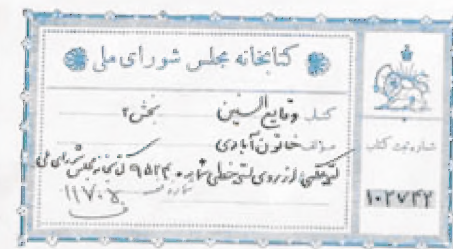 کتابخانه مجلس شورای ملی
کتاب وقایع السنین بخش ۲
مؤلف خاتون آبادی
از روی نسخه خطی شماره ۹۵۲۴ کتابخانه مجلس شورای ملی
شماره
۱۱۷۰۵
شماره ثبت کتاب
۱۰۲۷۴۲